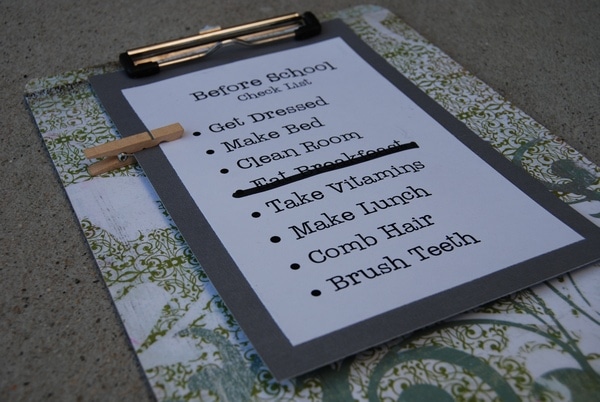 Before School
Check List
• Get Dressed
• Make Bed
• Clean Room
• Eat Breakfast
• Take Vitamins
• Make Lunch
• Comb Hair
• Brush Teeth